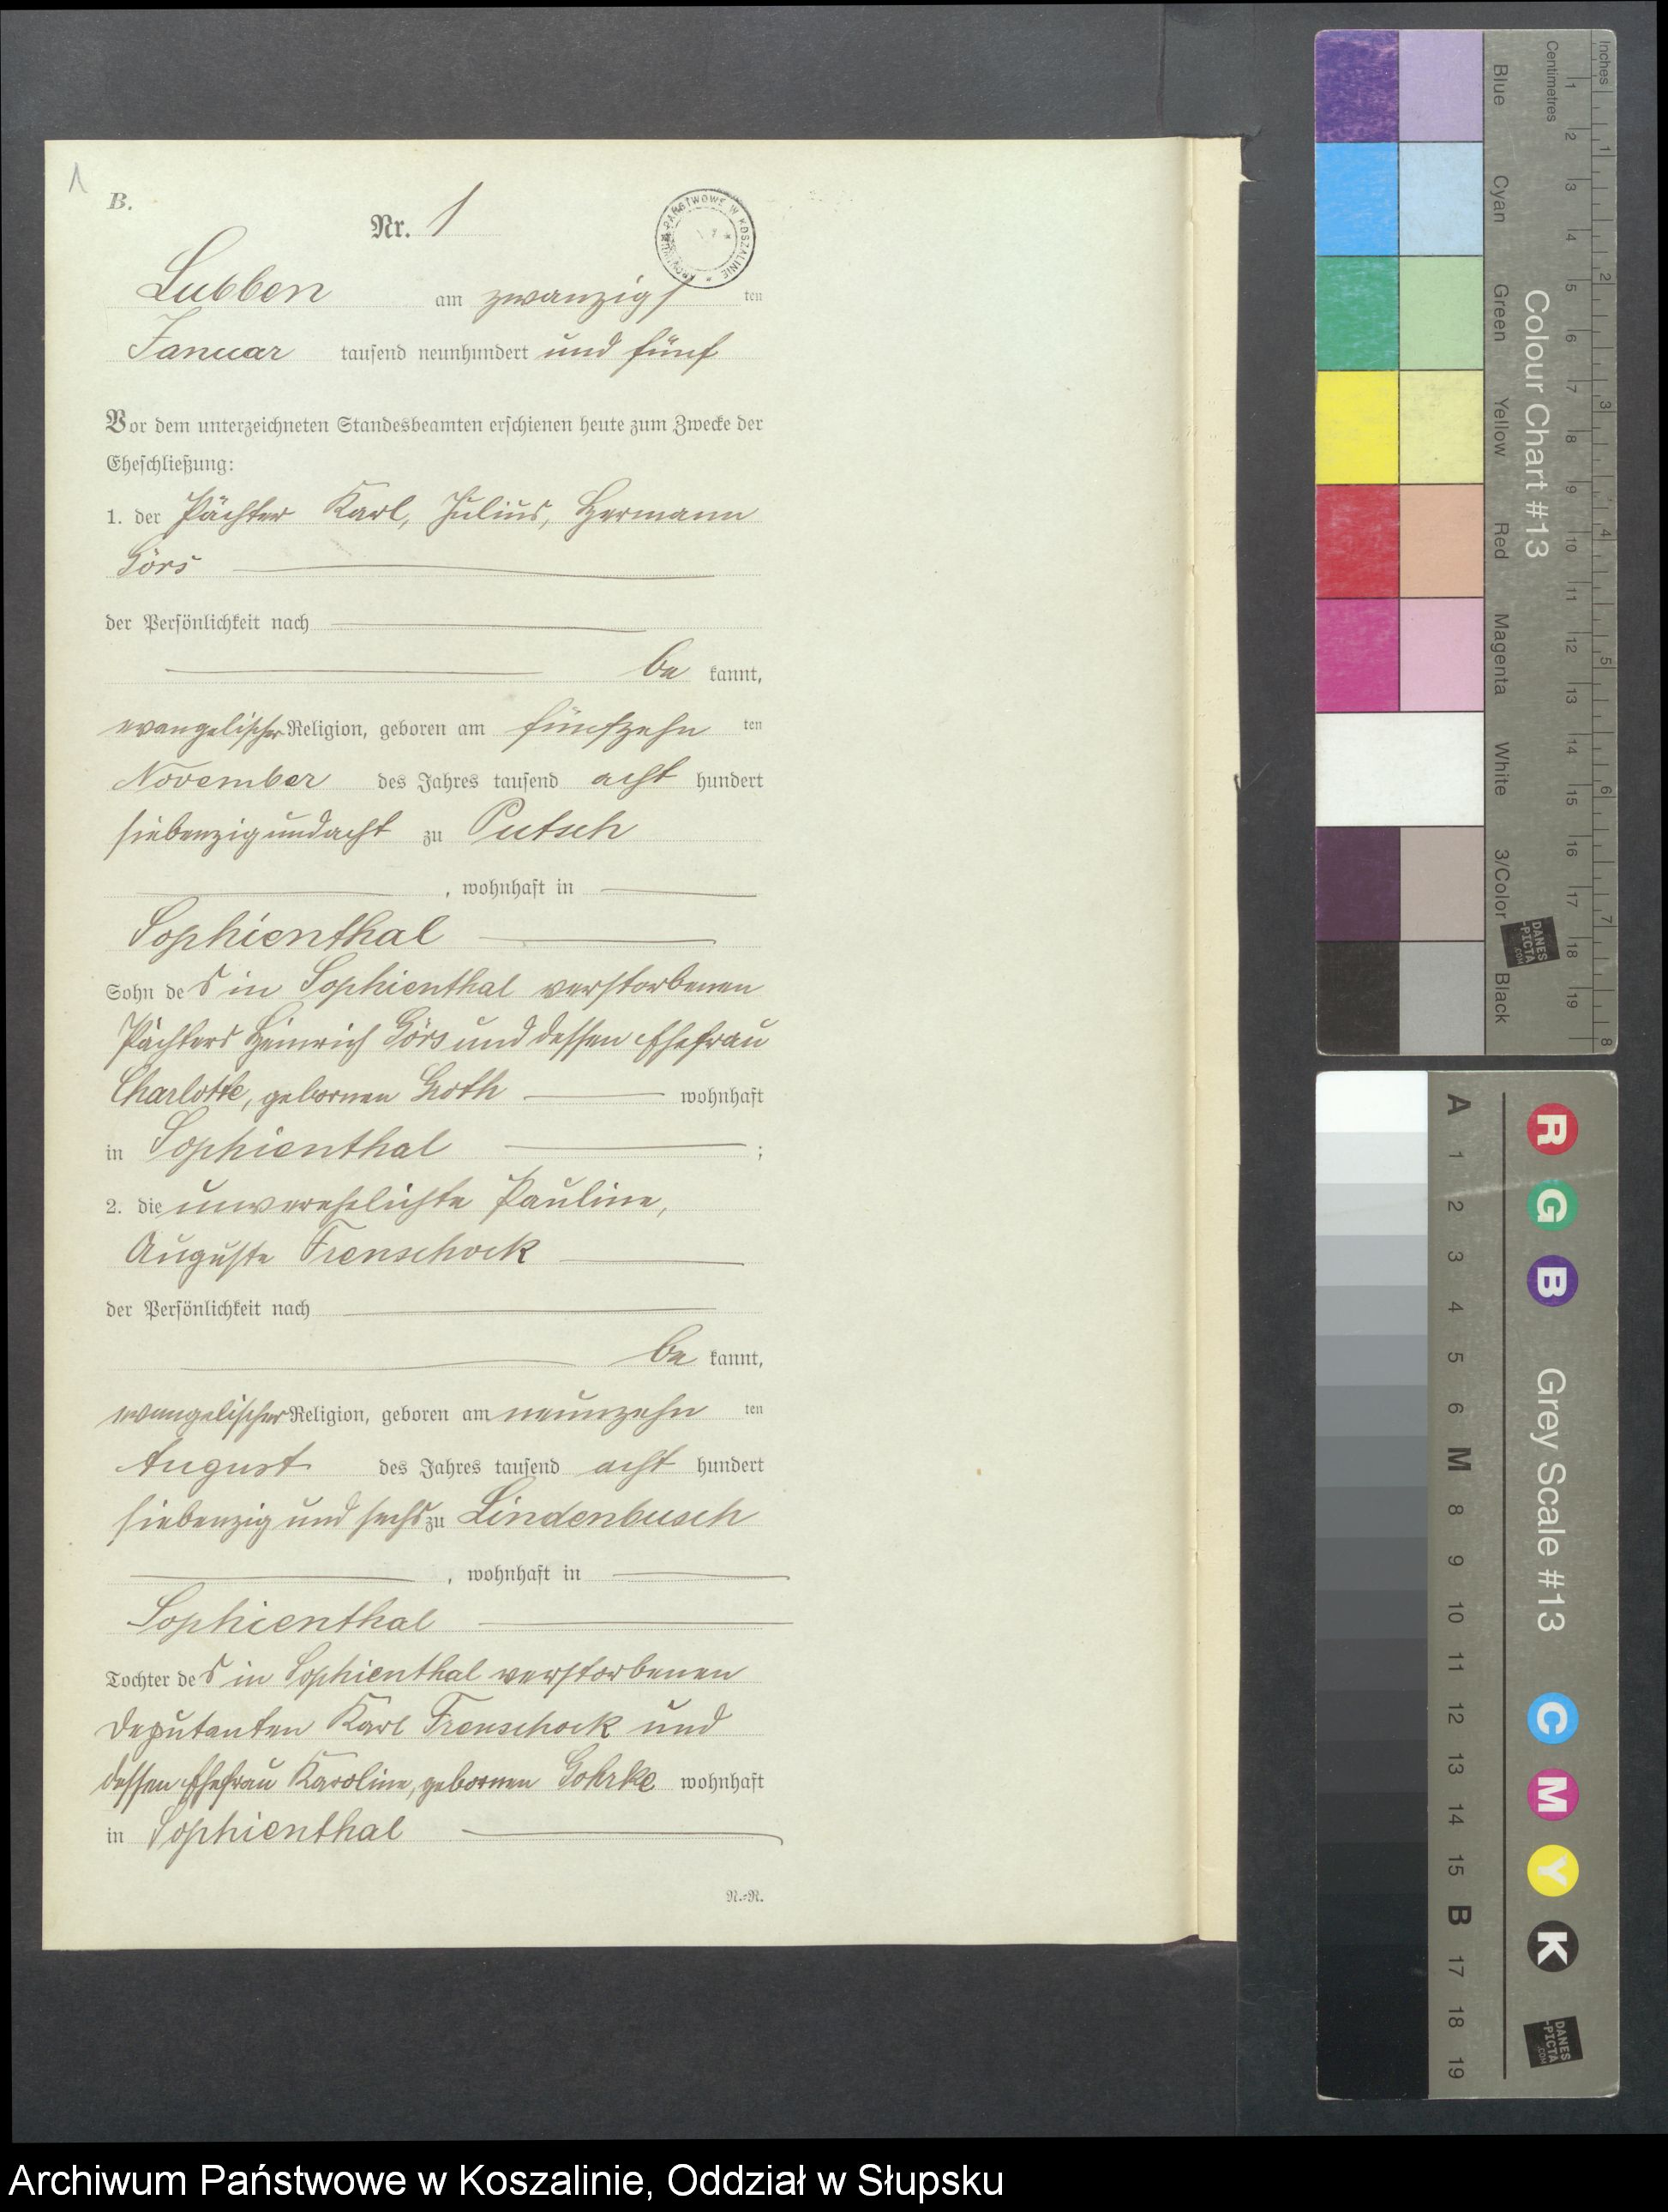 1
B.
Nr. 1
ARCHIWUM PAŃSTWOWE W KOSZALINIE
Lubben am zwanzigsten
Januar tausend neunhundert und fünf
Vor dem unterzeichneten Standesbeamten erschienen heute zum Zwecke der
Eheschließung:
1. der Pächter Karl, Julius, Hermann
Görs
der Persönlichkeit nach
be kannt,
evangelischer Religion, geboren am fünfzehn ten
November des Jahres tausend acht hundert
siebenzigundacht zu Putsch
, wohnhaft in
Sophienthal
Sohn des in Sophienthal verstorbenen
Pächters Heinrich Görs und dessen Ehefrau
Charlotte, gebornen Groth wohnhaft
in Sophienthal ;
2. die unverehelichte Pauline,
Auguste Trenschock
der Persönlichkeit nach
be kannt,
evangelischer Religion, geboren am neunzehn ten
August des Jahres tausend acht hundert
siebenzig und sechs zu Lindenbusch
, wohnhaft in
Sophienthal
Tochter des in Sophienthal verstorbenen
Deputanten Karl Trenschock und
dessen Ehefrau Karoline, gebornen Gohrke wohnhaft
in Sophienthal
N.-N.
Inches 1 2 3 4 5 6 7 8
Centimetres 1 2 3 4 5 6 7 8 9 10 11 12 13 14 15 16 17 18 19
Colour Chart #13
Blue Cyan Green Yellow Red Magenta White 3/Color Black
DANES
-PICTA
.COM
A 1 2 3 4 5 6 M 8 9 10 11 12 13 14 15 B 17 18 19
R G B
Grey Scale #13
C M Y K
DANES
-PICTA
.COM
Archiwum Państwowe w Koszalinie, Oddział w Słupsku